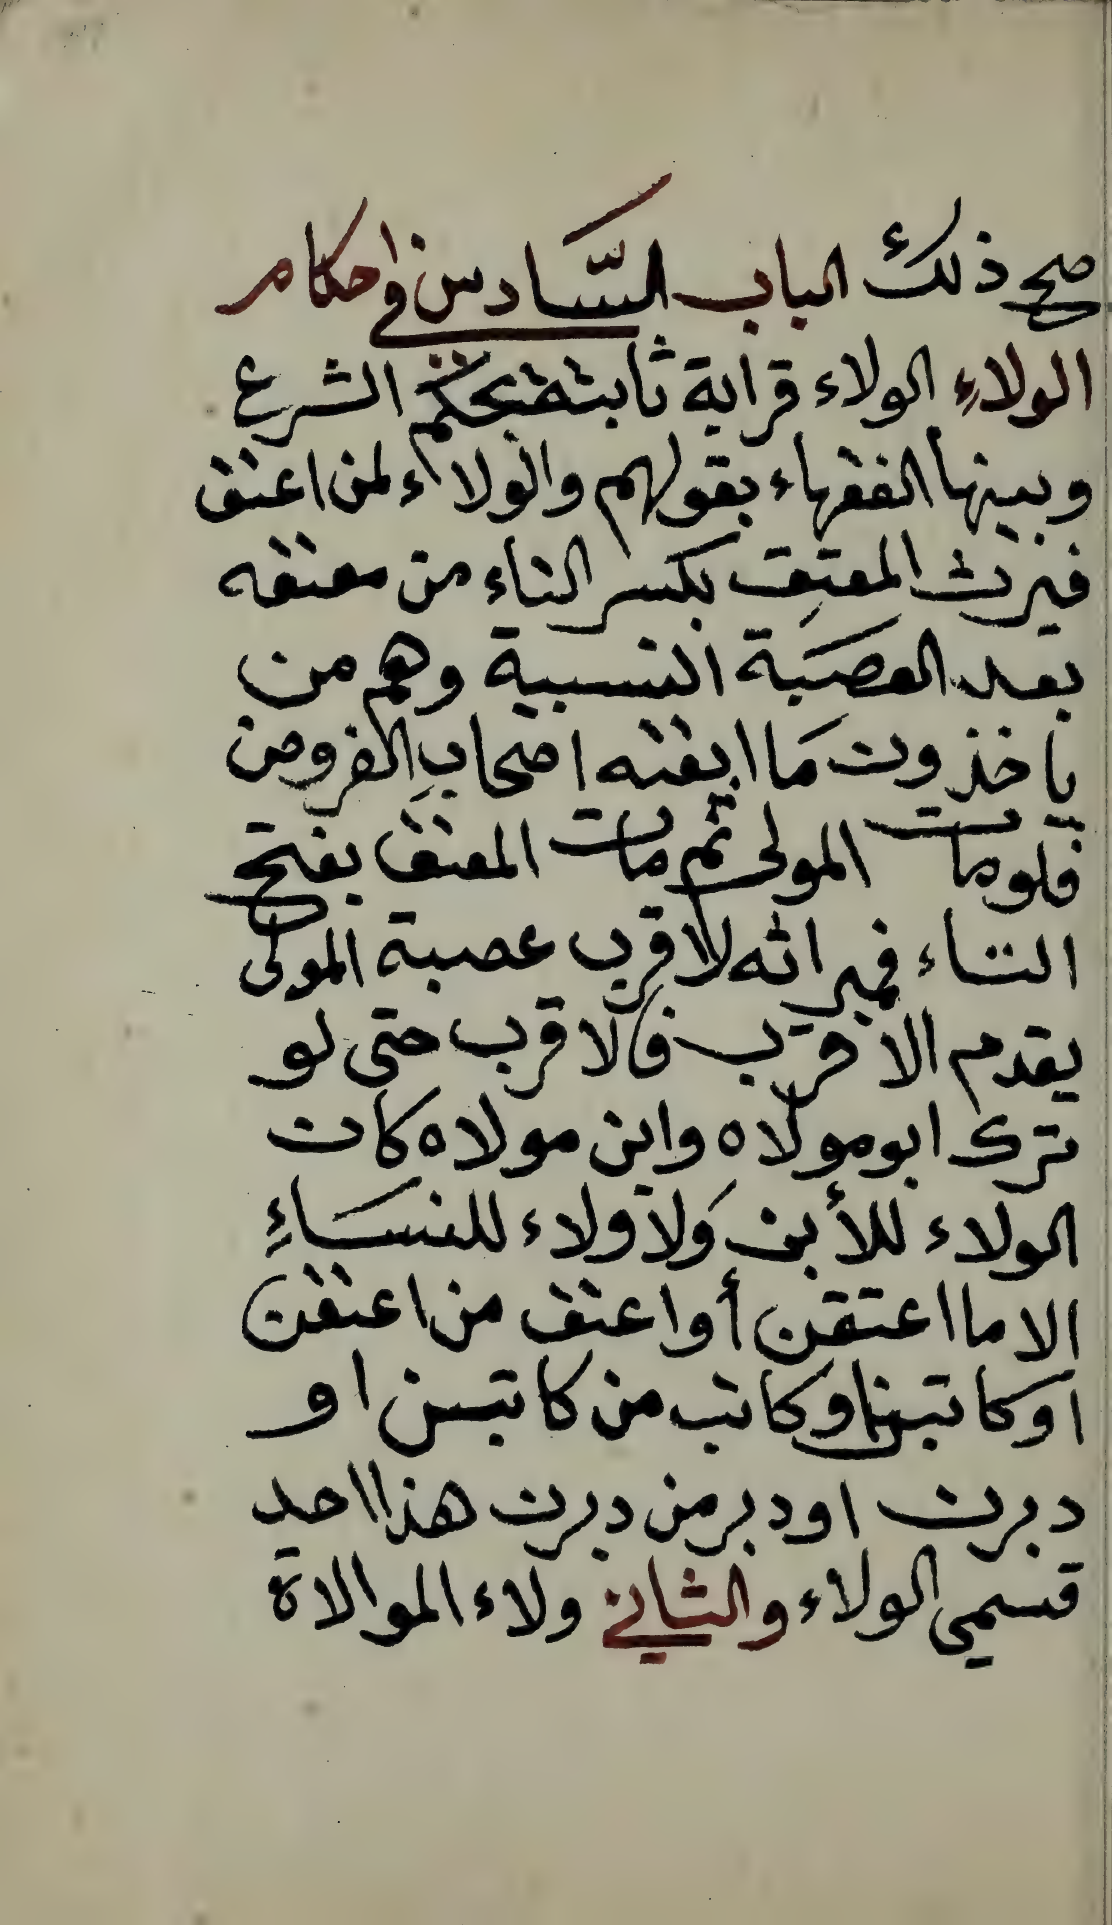 صح ذلك الباب السّادس في احكام
الولاء الولاء قرابة ثابتة بحكم الشرع
وبينها الفقهاء بقولهم والولاء لمن اعتق
فيرث المعتِق بكسر التاء من معتقه
بعد العصَبة النسبية وهم من
ياخذون مَا ابقته اصحابِ الفروض
فلو مات المولى ثم مات المعتق بفتح
التاء فميراثه لاقرب عصبة المولى
يقدم الاقرَب فالاقرب حتى لو
ترك ابو مولاه وابن مولاه كان
الولاء للأبن وَلا ولاء للنسَاءِ
الا ما اعتقن أو اعتق من اعتقن
او كاتبن او كاتب من كاتبن او
دبرن او دبر من دبرن هذا احد
قسمي الولاء والثاني ولاء الموالاة